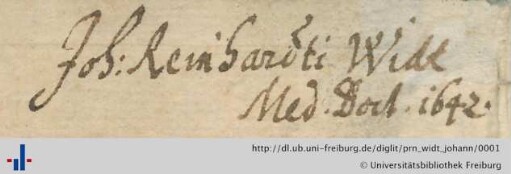 Joh: Reinhardti Widt
Med. Doct. 1642.
http://dl.ub.uni-freiburg.de/diglit/prn_widt_johann/0001
© Universitätsbibliothek Freiburg